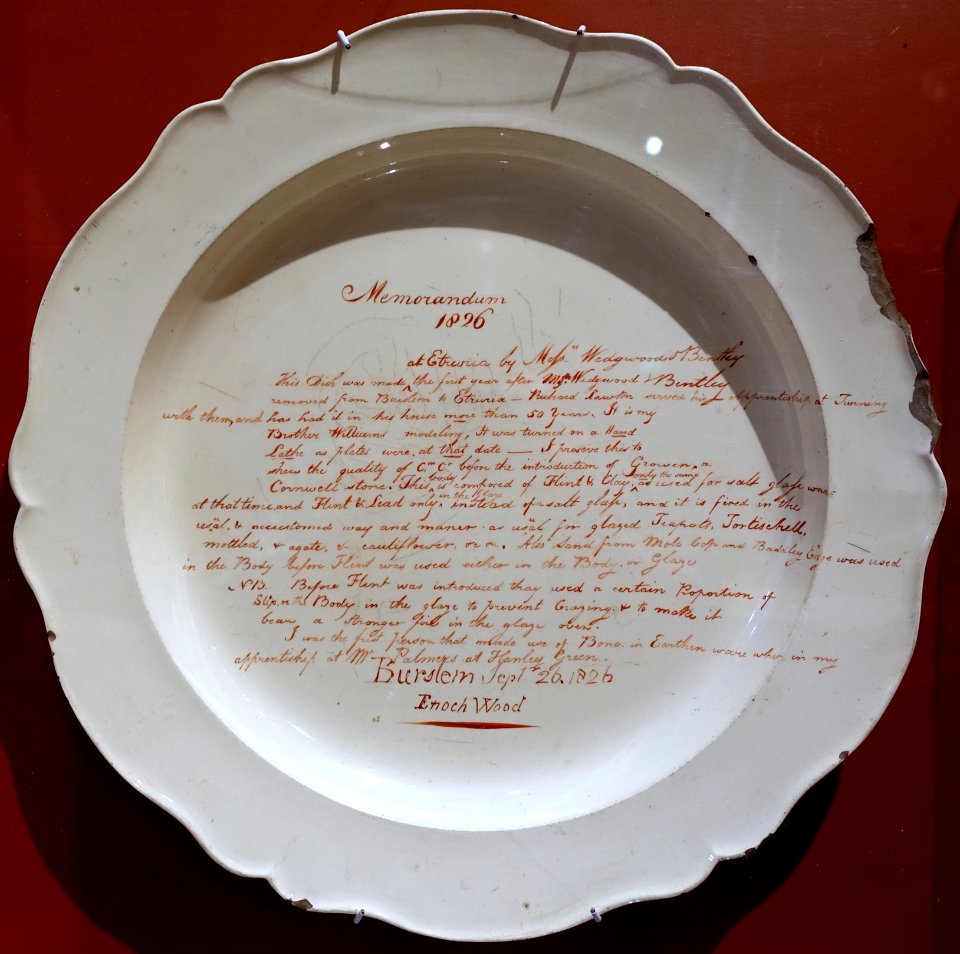 Memorandum
1826
at Etruria by Mess.rs Wedgwood & Bentley
This Dish was made ^ the first year after Mess.rs Wedgwood & Bentley
removed from Burslem to Etruria – Richard Lawton served his apprentiship at Turning
with them, and has had it in his house more than 50 Years. It is my
Brother Williams modeling, It was turned on a Hand
Lathe as plates were, at that date — I preserve this to
shew the quality of C.m C.r before the introduction of Growen or
body only the same
Cornwell stone. This ^ is composed of Flint & Clay, ^ as used for salt glass ware
in the Glaze
at that time and Flint & Lead only ^ instead of a salt glase, and it is fired in the
usal, & accustomed way and maner as usal for glazed Teapots, Tortishell,
mottled, & agate, & cauliflower, &c &c. Also Sand from Mole Cop and Baddley Edge was used
in the Body before Flint was used either in the Body, or Glaze
NB. Before Flint was introduced thay used a certain Proportion of
Slip in the Body in the glaze to prevent Crazing & to make it
bear a stronger fire in the glaze oven.
I was the first person that made use of Bone in Earthen ware when in my
apprentiship at Mr Palmers at Hanley Green.
Burslem Sept.r 26, 1826
Enoch Wood